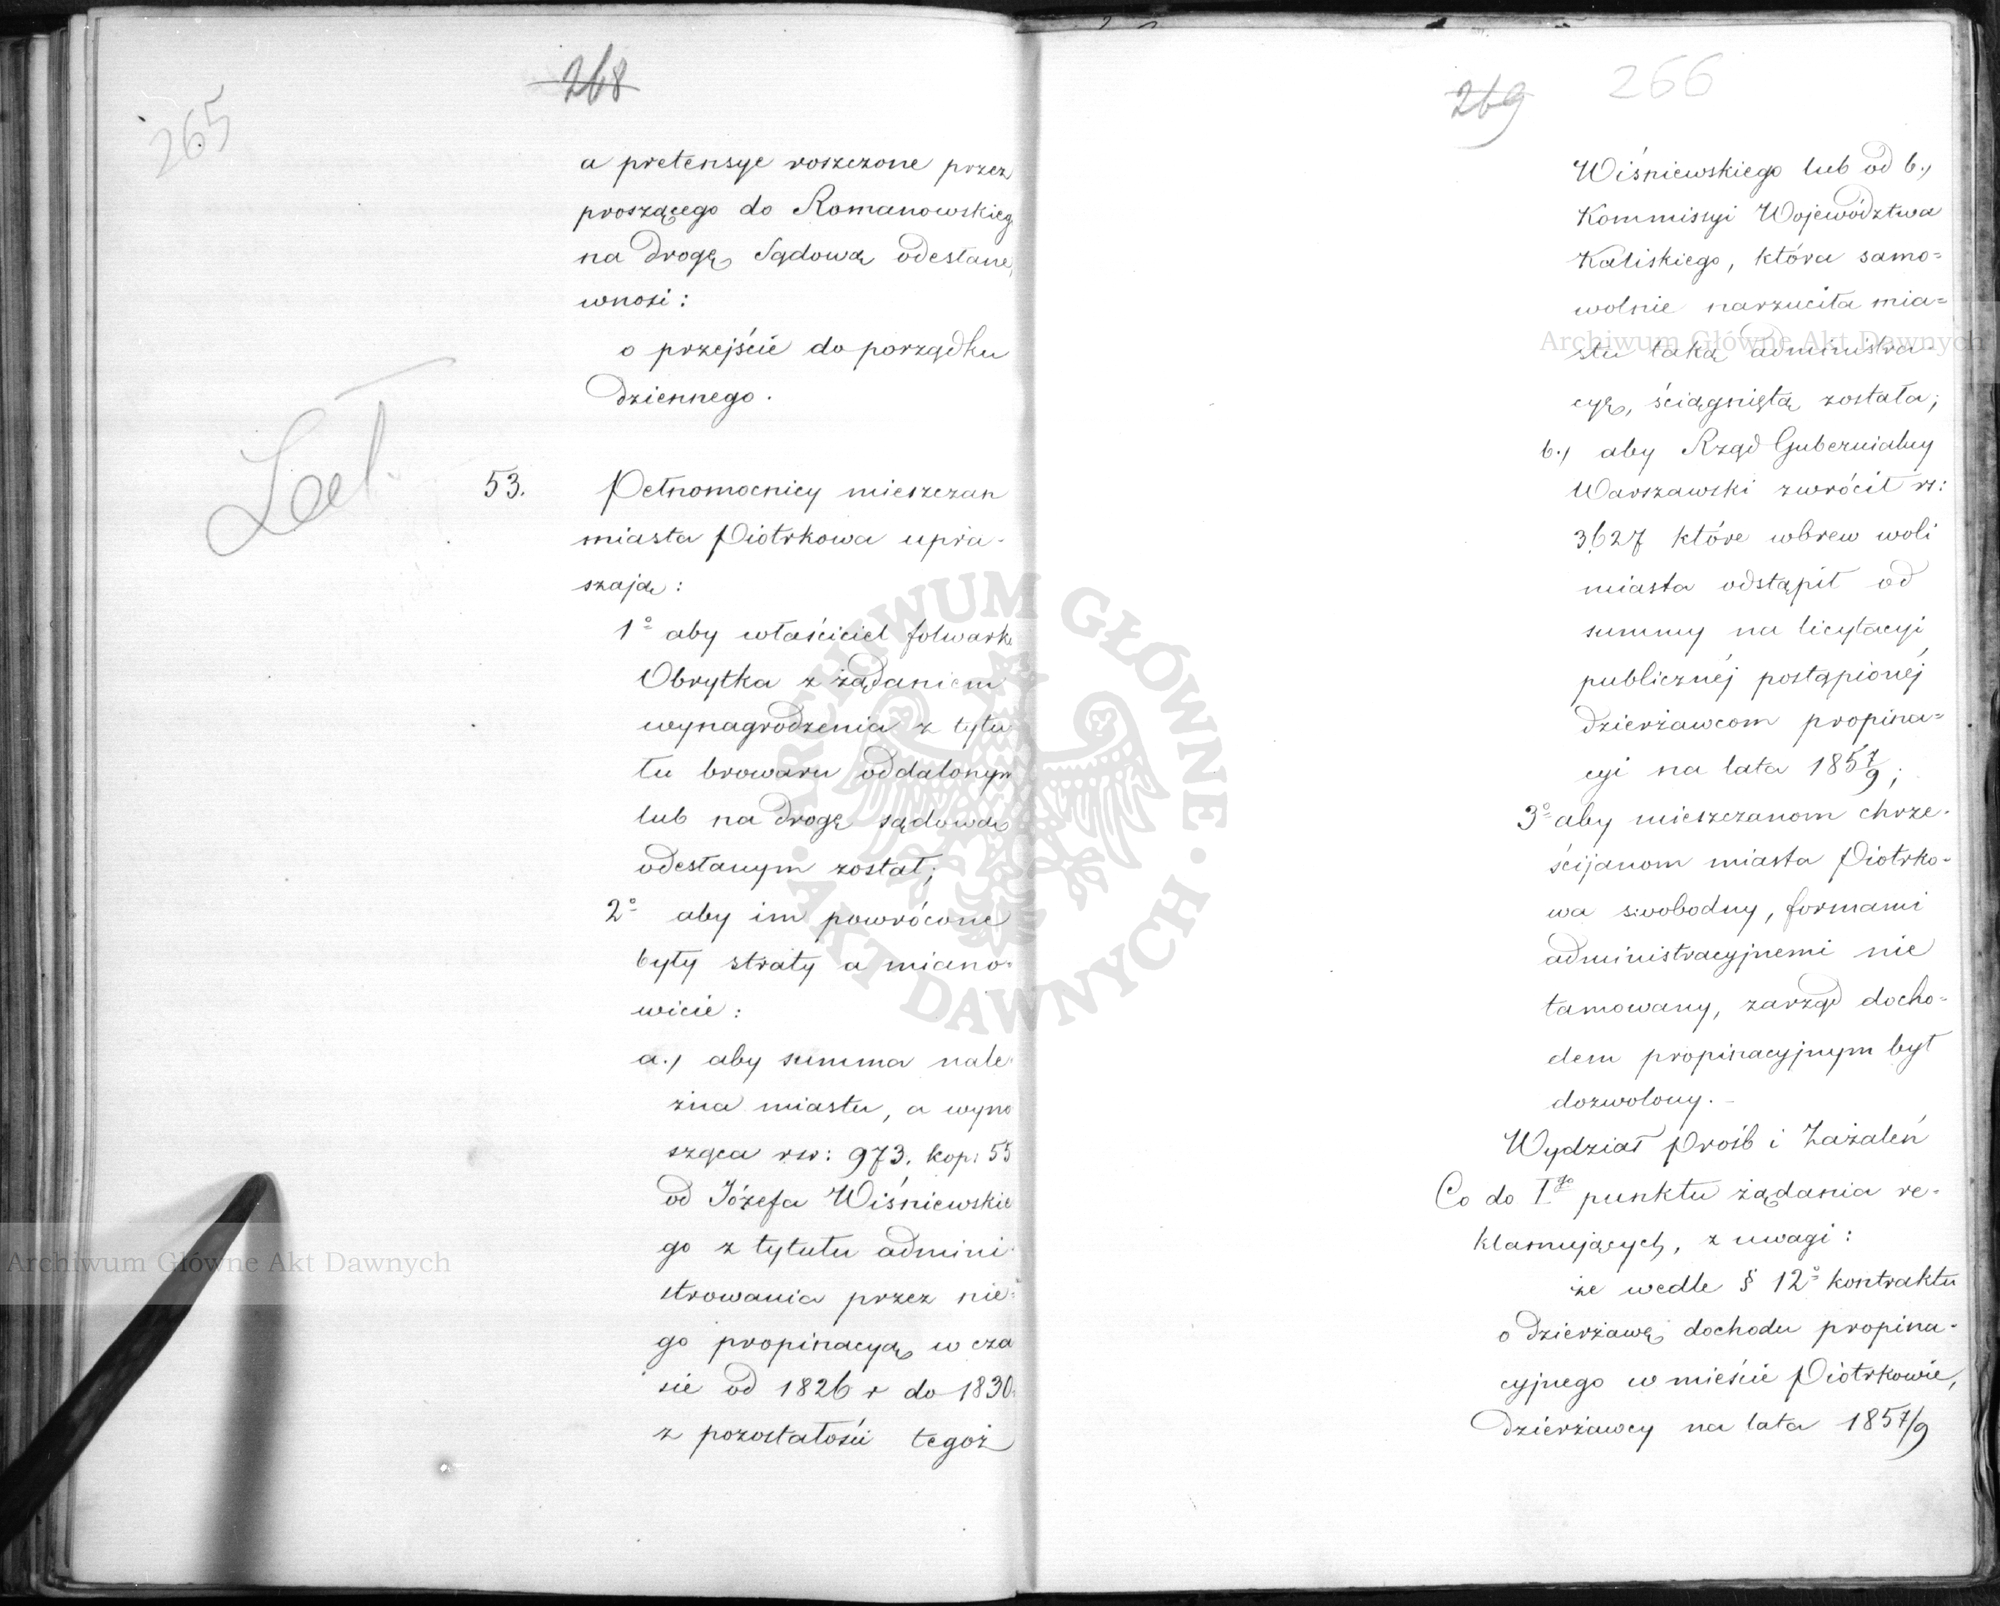 265
268
a pretensye roszczone przez
proszącego do Romanowskieg
na drogę Sądową odesłane,
wnosi:
o przejście do porządku
dziennego.
53. Pełnomocnicy mieszczan
miasta Piotrkowa upra-
szają:
1º aby właściciel folwark
Obrytka z żądaniem
wynagrodzenia z tytu
łu browaru oddalonym
lub na drogę sądową
odesłanym został;
2º aby im powrócone
były straty a miano-
wicie:
a.) aby summa nale
żna miastu, a wyno
sząca rsr: 973. kop: 55
od Józefa Wiśniewskie
go z tytułu admini
strowania przez nie-
go propinacyą w cza
sie od 1826 r do 1830.
z pozostałości tegoż
269 266
Wiśniewskiego lub od b.)
Kommissyi Województwa
Kaliskiego, która samo=
wolnie narzuciła mia=
stu taką administra-
cyę, ściągniętą została;
b.) aby Rząd Gubernialny
Warszawski zwrócił rs:
3627 które wbrew woli
miasta odstąpił od
summy na licytacyi
publicznéj postąpionéj
dzierżawcom propina=
cyi na lata 1857/9;
3º aby mieszczanom chrze-
ścijanom miasta Piotrko-
wa swobodny, formami
administracyjnemi nie
tamowany, zarząd docho-
dem propinacyjnym był
dozwolony.-
Wydział Próśb i Zażaleń
Co do Igo punktu żądania re-
klamujących, z uwagi:
że wedle § 12º kontraktu
o dzierżawę dochodu propina-
cyjnego w mieście Piotrkowie,
Dzierżawcy na lata 1857/9
Archiwum Główne Akt Dawnych
Archiwum Główne Akt Dawnych
· ARCHIWUM GŁÓWNE · AKT DAWNYCH